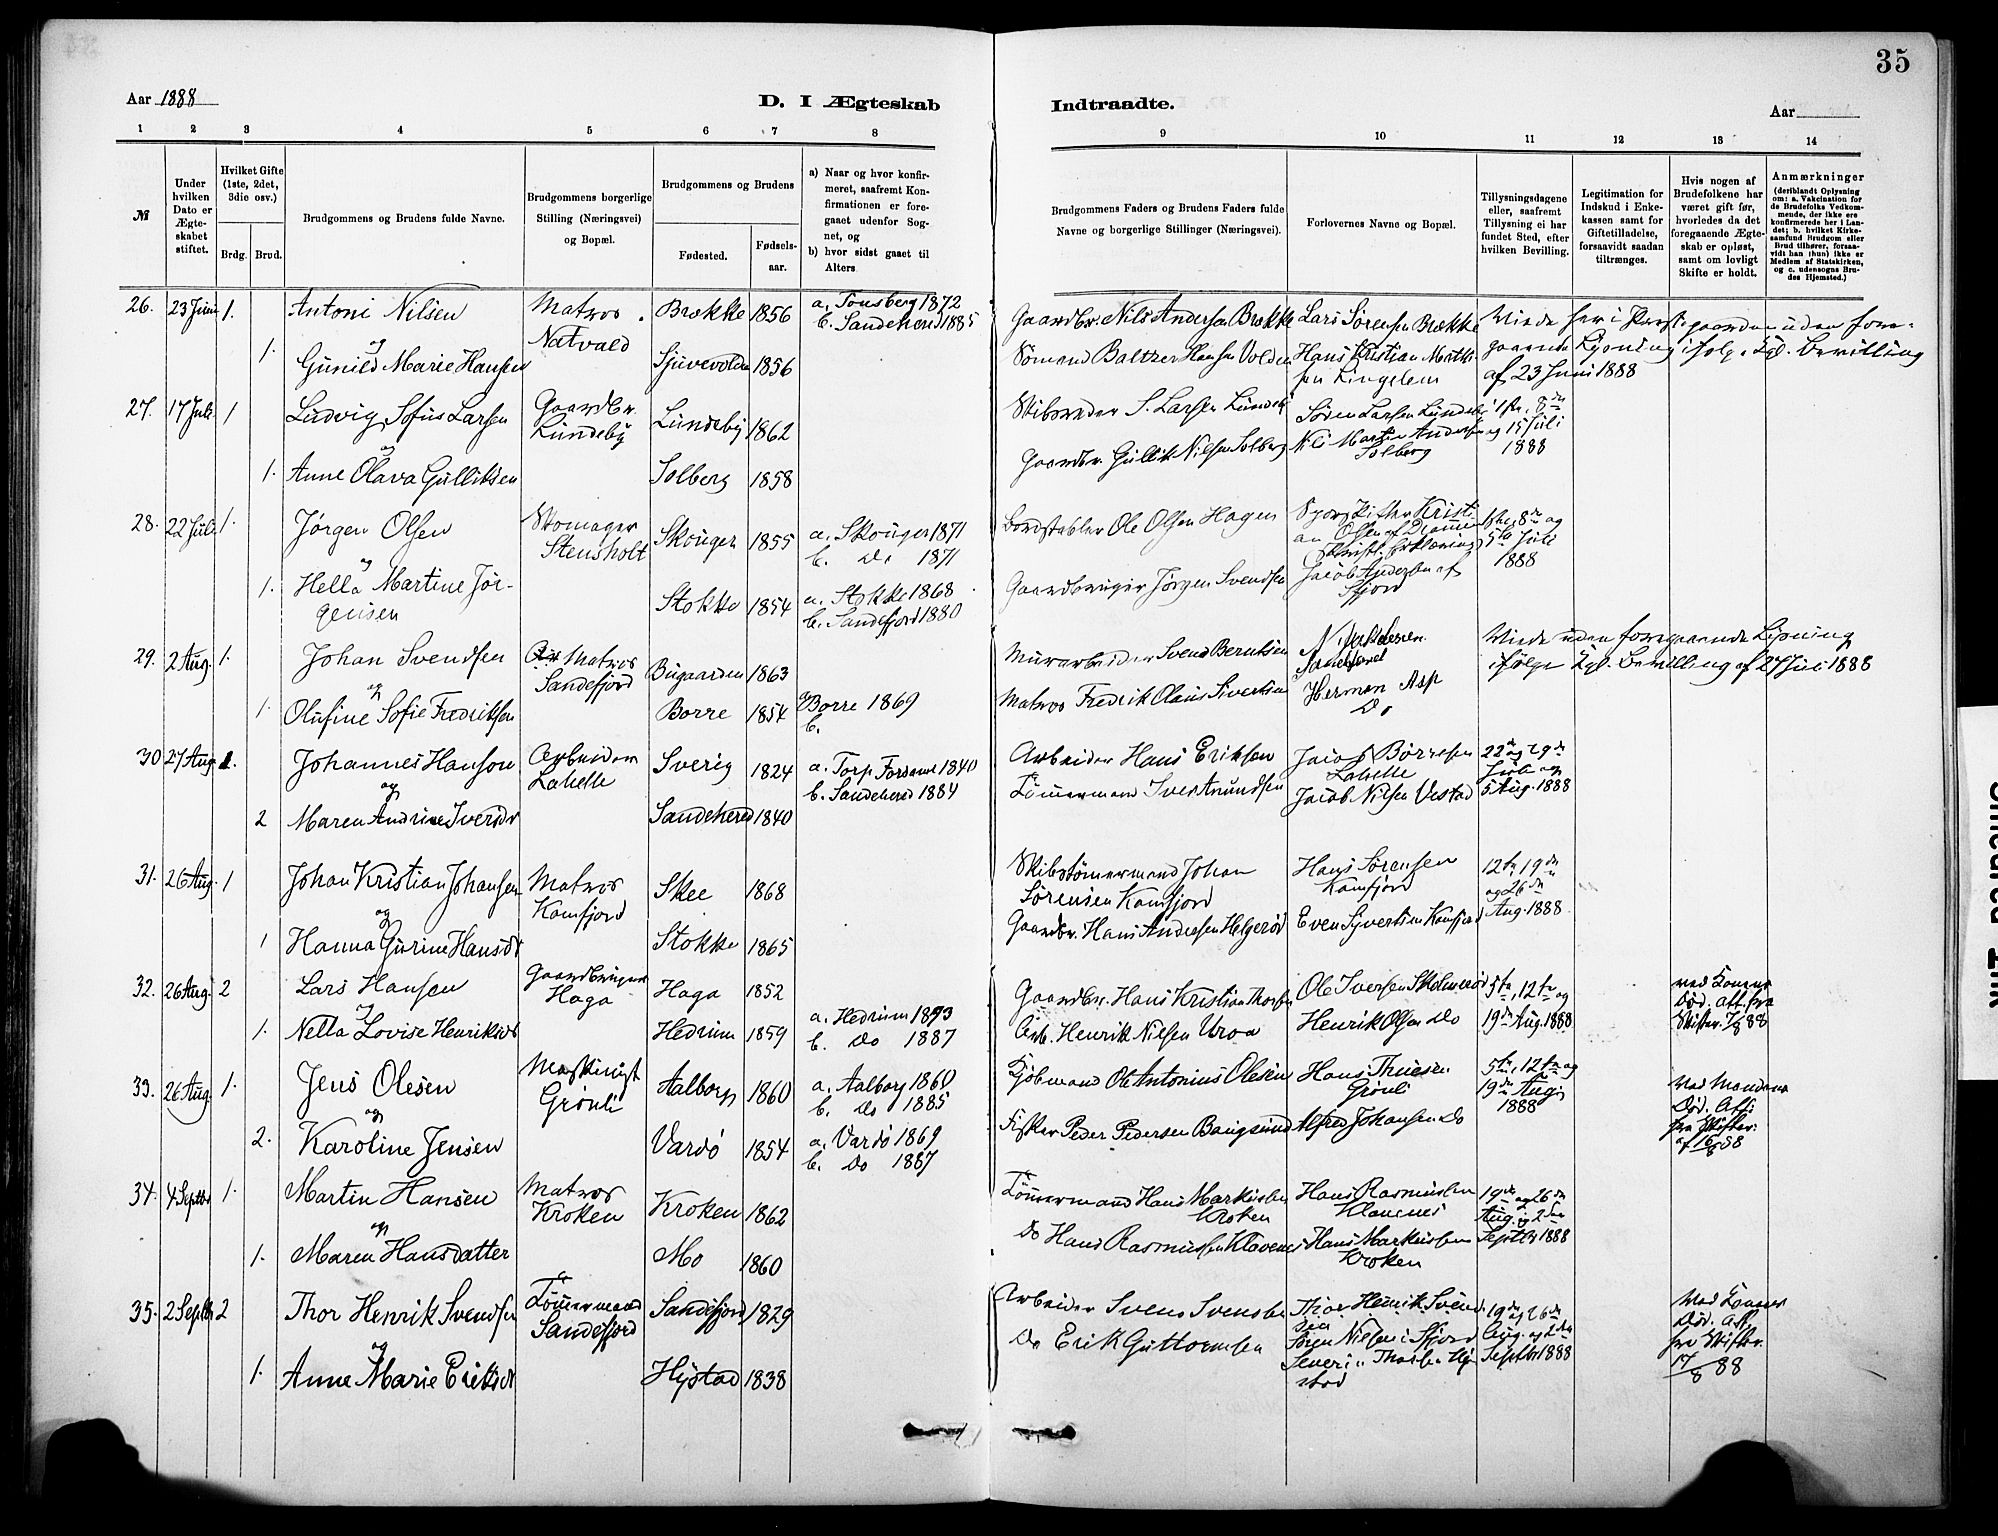 35
Aar 1888
D. I Ægteskab
Indtraadte.
Aar
1 2 3 4 5 6 7 8 9 10 11 12 13 14
№
Under hvilken Dato er Ægteskabet stiftet.
Hvilket Gifte (1ste, 2det, 3die osv.)
Brdg. Brud.
Brudgommens og Brudens fulde Navne.
Brudgommens borgerlige Stilling (Næringsvei) og Bopæl.
Brudgommens og Brudens
Fødested.
Fødsels-aar.
a) Naar og hvor konfirmeret, saafremt Konfirmationen er foregaaet udenfor Sognet, og
b) hvor sidst gaaet til Alters
Brudgommens Faders og Brudens Faders fulde Navne og borgerlige Stillinger (Næringsvei).
Forlovernes Navne og Bopæl.
Tillysningsdagene eller, saafremt Tillysning ei har fundet Sted, efter hvilken Bevilling.
Legitimation for Indskud i Enkekassen samt for Giftetilladelse, forsaavidt saadan tiltrænges.
Hvis nogen af Brudefolkene har været gift før, hvorledes da det foregaaende Ægteskab er opløst, samt om lovligt Skifte er holdt.
Anmærkninger
(deriblandt Oplysning om: a. Vakcination for de Brudefolks Vedkommende, der ikke ere konfirmerede her i Landet; b. hvilket Kirkesamfund Brudgom eller Brud tilhører, forsaavidt han (hun) ikke er Medlem af Statskirken, og c. udensogns Brudes Hjemsted.)
26. 23 Juni 1. Antoni Nilsen Matros Natvald Brække 1856 a. Tonsberg 1872 b. Sandeherred 1885
Gaardbr. Nils Andersen Brække Lars Sørensen Brække Viede her i Præstegaarden uden fore-
og
1. Gunild Marie Hansen 1856
Sømand Baltzer Hansen Volden Hans Kristian gaaende Lysning ifølge Kgl. Bevilling
af 23 Juni 1888
27. 17 Juli 1 Ludvig Sofus Larsen Gaardbr. Lundeby Lundeby 1862
S. Larsen Lundeby Søren Larsen Lundeby 1ste, 8de og 15 Juli 1888
og
1. Anne Olava Gulliksen Solberg 1858
Gaardbr. Gullik Nilsen Solberg Martin Andersen Solberg
28. 22 Juli 1. Jørgen Olsen Skomager Stensholt Skouger 1855 a. Skouger 1871 b. Do 1871
Bordstabler Ole Olsen Hagen 1ste, 8de og Juli 1888
og
1. Hella Martine Jørgensen Stokke 1854 a. Stokke 1868 b. Sandefjord 1880
Gaardbruger Jørgen Svendsen Jacob Andersen af Sfjord
29. 2 Aug. 1. Johan Svendsen Matros Sandefjord Bugaarden 1863
Murarbeider Svend Berntsen Sandefjord Viede uden foregaaende Lysning
ifølge Kgl. Bevilling af 24 Juli 1888
og
1. Olufine Sofie Fredriksen Borre 1854 Borre 1869 b.
Matros Fredrik Olaus Sivertsen Herman Asp Do
30 27 Aug. 1. Johannes Hanson Arbeider Lahelle Sverig 1824 a. Torp 1840 b. Sandeherred 1884
Arbeider Hans Eriksen Jacob Børresen Lahelle 22de og 29de Juli og 5 Aug. 1888
og
2 Maren Andrine Iversdr Sandeherred 1840
Tømmermand Iver Amundsen Jacob Nilsen Vestad
31. 26 Aug. 1 Johan Kristian Johansen Matros Kamfjord Skee 1868
Skibstømmermand Johan Sørensen Kamfjord Hans Sørensen Kamfjord 12te, 19de og 26de Aug. 1888
og
1 Hanna Gurine Hansdr Stokke 1865
Gaardbr. Hans Andersen Helgerød Even Syvertsen Kamfjord
32. 26 Aug. 2 Lars Hansen Gaardbruger Haga Haga 1852
Gaardbr. Hans Kristian Thorsen Ole Iversen 5te, 12te og 19de Aug. 1888 ved Konens Død. Att. fra Skifter. 7/8 88
og
1. Nella Lovise Henriksdr Hedrum 1859 a. Hedrum 1893 b. Do 1887
Arb. Henrik Nilsen Uroa Henrik Olsen Do
33. 26 Aug. 1. Jens Olesen Maskinist Grønli Aalborg 1860 a. Aalborg 1860 b. Do 1885
Kjøbmand Ole Antonius Olesen Hans Thuesen Grønli 5te, 12te og 19de Aug. 1888 Ved Mandens Død. Att. fra Skifter. af 16/8 88
og
2. Karoline Jensen Vardø 1854 a. Vardø 1869 b. Do 1887
Fisker Peder Pedersen Bangsund Alfred Johansen Do
34. 4 Septbr 1. Martin Hansen Matros Kroken Kroken 1862
Tømmermand Hans Markussen Kroken Hans Rasmussen Klavenes 19de og 26de Aug. og 2den Septbr 1888
og
1. Maren Hansdatter Mo 1860
Do Hans Rasmussen Klavenes Hans Markussen Kroken
35. 2 Septbr 2 Thor Henrik Svendsen Tømmermand Sandefjord Sandefjord 1829
Arbeider Svend Svendsen Thor Henrik Svendsen 19de og 26de Aug. og 2den Septbr 1888 Ved Konens Død. Att. fra Skifter. 17/8 88
og
1. Anne Marie Eriksdr Hystad 1838
Do Erik Guttormsen Søren Nilsen i Sfjord Severin Thorsen Hystad